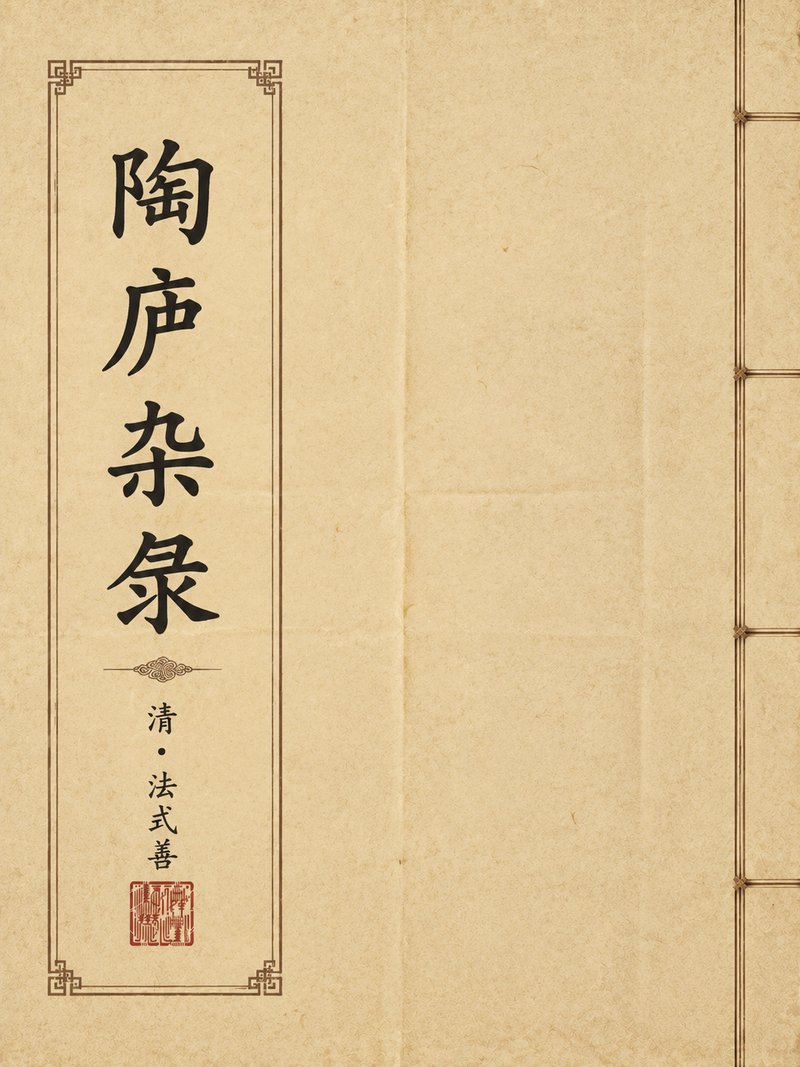 陶庐杂录
清·法式善